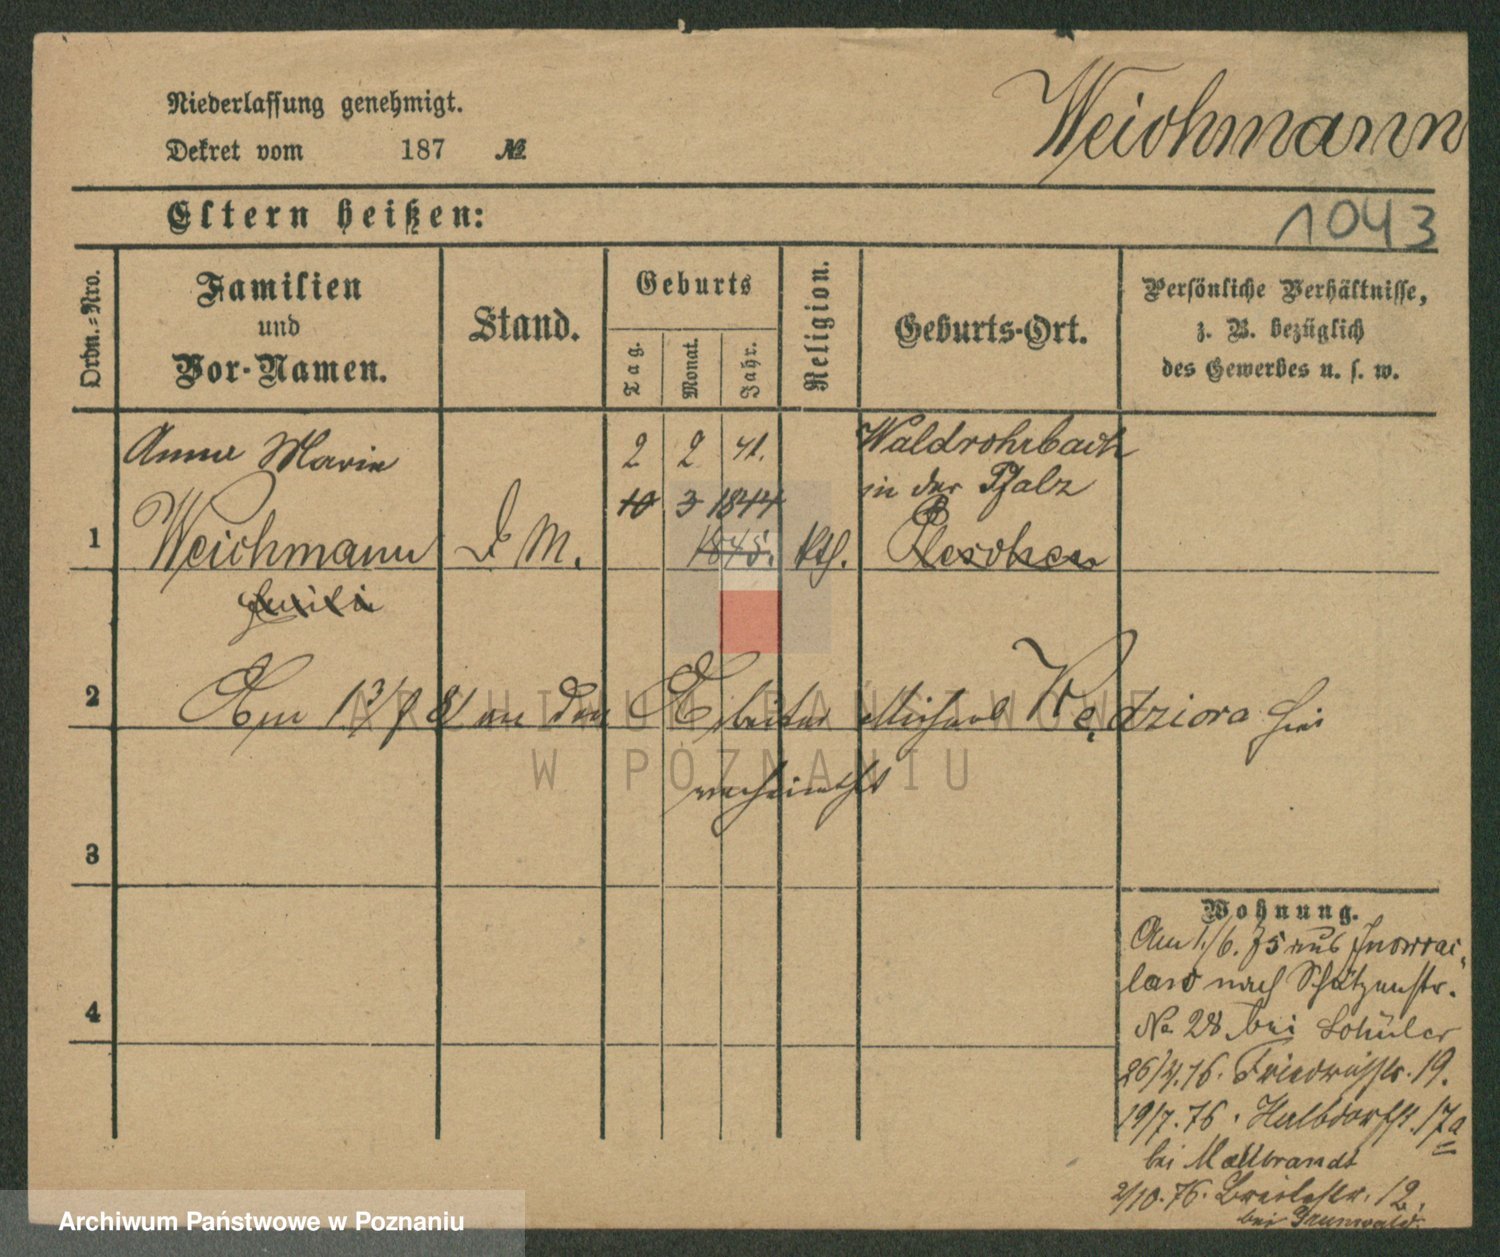 Niederlassung genehmigt.
Weichmann
Dekret vom 187 №
Eltern heißen:
1043
Ordn.-Nro.
Familien
und
Vor-Namen.
Stand.
Geburts
Tag.
Monat.
Jahr.
Religion.
Geburts-Ort.
Persönliche Verhältnisse,
z. B. bezüglich
des Gewerbes u. s. w.
Anna Marie 2 2 41. Waldrohrbach
10 3 1844 in der Pfalz
1 Weichmann D M. 1845. kth. Pleschen
2 Am 13/9 81 an den Arbeiter Michael Kędziora hier
verheirathet
3
Wohnung.
Am 1./6. 75 aus Inowrac-
law nach Schützenstr.
4 No 28 bei Schüler
26/4.76. Friedrichstr. 19.
19/7.76. Halbdorfstr. 17a
bei Mallbrandt
2/10.76. Breitestr. 12.
bei Grunwald.
ARCHIWUM PAŃSTWOWE
W POZNANIU
Archiwum Państwowe w Poznaniu